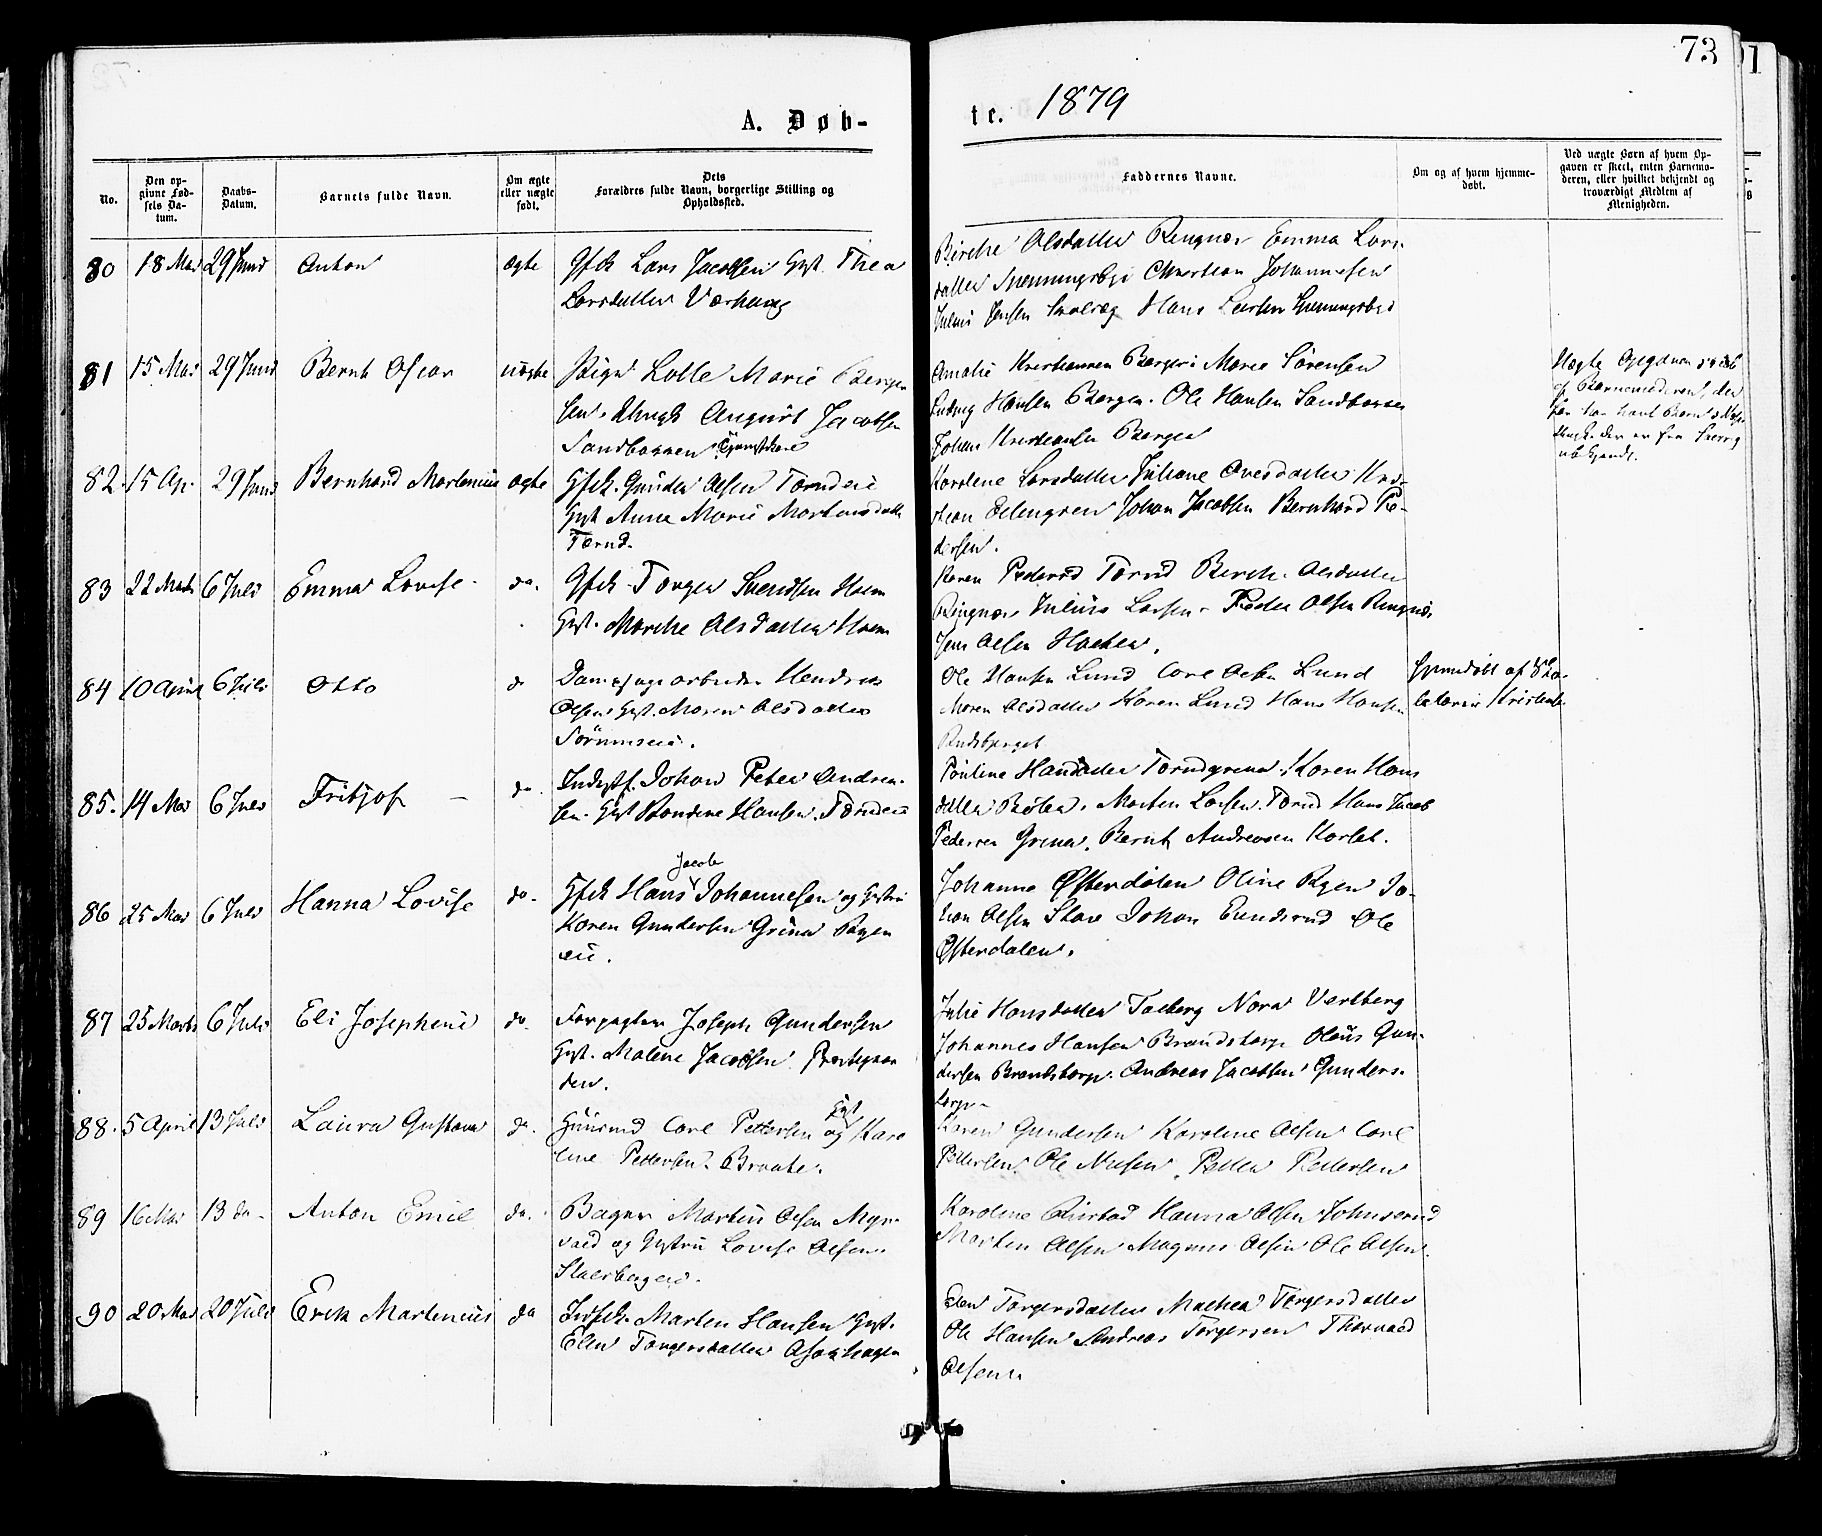 73
A. Døb-
te. 1879
No.
Den op-
givne Fød-
sels Da-
tum.
Daabs-
Datum.
Barnets fulde Navn.
Om ægte
eller uægte
født.
Dets
Forældres fulde Navn, borgerlige Stilling og
Opholdssted.
Faddernes Navne.
Om og af hvem hjemme-
døbt.
Ved uægte Børn af hvem Op-
gaven er skeet, enten Barnemo-
deren, eller hvilket bekjendt og
troværdigt Medlem af
Menigheden.
80 18 Mai 29 Juni Anton ægte Gfsk Lars Jacobsen Gyst. Thea
Larsdatter Værhaug
Birthe Olsdatter Ringnæs Emma Lars-
datter Christian Johannesen
Julius Jensen Hans Larsen
81 15 Mai 29 Juni Bernt Oscar uægte Pige Lotte Marie Bergen
sen. Ungk August Jacobsen
Sandbakken
Amalie Kristiansen Bergen Marie Sørensen
Ludvig Hansen Bergen. Ole Hansen Sandbakken
Johan Kristiansen Bergen
Uægte Opgaven skeet
af Barnemoderen, der
før har havt Barn
der er fra Sverrig
82. 15 Ap. 29 Juni Bernhard Martenius ægte Gfsk. Gunder Olsen Tørudeie
Gyst Anna Marie Martinsdatter
Tørud.
Karolene Larsdatter Juliane Ovesdatter Kris-
tian Edengren Johan Jacobsen Bernhard Pe-
dersen.
83 22 Marts 6 Juli Emma Lovise do. Gfsk Torger Svendsen
Gyst. Marthe Olsdatter
Karen Pedersd Tørud Berthe Olsdatter
Ringnæs Julius Larsen Peder Olsen Ringnæs
Jens Olsen
84 10 April 6 Juli Otto do Dampsagarbeider Hendrik
Olsen Gyst. Maren Olsdatter
Sørumseie.
Ole Hansen Lund Carl Olsen Lund
Maren Olsdatter Karen Lund Hans Hansen
Rudsberget
hjemdøbt af Sko-
lelærer Kristian
85. 14 Mai 6 Juli Fritjof do. Indsysf. Johan Peter Andrea-
sen. Gyst Randine Hansen. Tørudeie
Pouline Hansdatter Tørudgrena. Karen Hans
datter Bølen. Marten Larsen Tørud Hans Jacob
Pedersen Grena. Bernt Andreasen Korset.
86 25 Mai 6 Juli Hanna Lovise do. Gfsk Hans Jacob Johannesen og Gystru
Karen Gundersen Grina Ryen
eie.
Johanne Østerdalen Oline Ryen Jo-
han Olsen Johan Eundsrud Ole
Østerdalen.
87 25 Marts 6 Juli Eli Josephine do. Forpagter Joseph Gundersen
Gyst. Malene Jacobsen Prestegaar
den.
Julie Hansdatter Taiberg Nora Vestberg
Johannes Hansen Brandstorp Olaus Gun-
dersen Brandstorp. Andreas Jacobsen Gunders-
torp.
88. 5 April 13 Juli Laura Gustava do. Huusmd Carl Pettersen og Gyst Karo
line Pettersen. Braate.
Karen Gundersen Karoline Olsen Carl
Pettersen Ole Petter Pettersen
89 16 Mai 13 do Anton Emil do. Bager Martin Olsen Myr-
vold og Gystru Lovise Olsen

Karoline Rustad Hanna Olsen Johnsrud
Marten Olsen Magnus Olsen Ole Olsen.
90 20 Mai 20 Juli Erik Martinius do Indsk. Marten Hansen Gyst.
Elen Torgersdatter Asakhagen
Elen Torgersdatter Mathea Torgersdatter
Ole Hansen Andreas Torgersen Thorvald
Olsen.